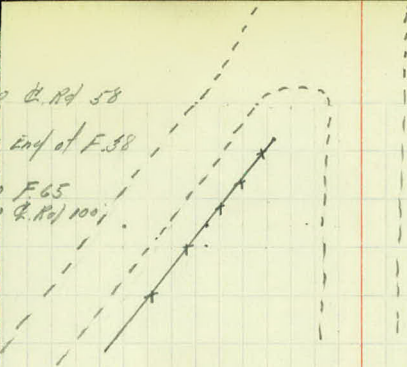 ℄ Rd 58
End of F.38
F.65
℄ Rd 100